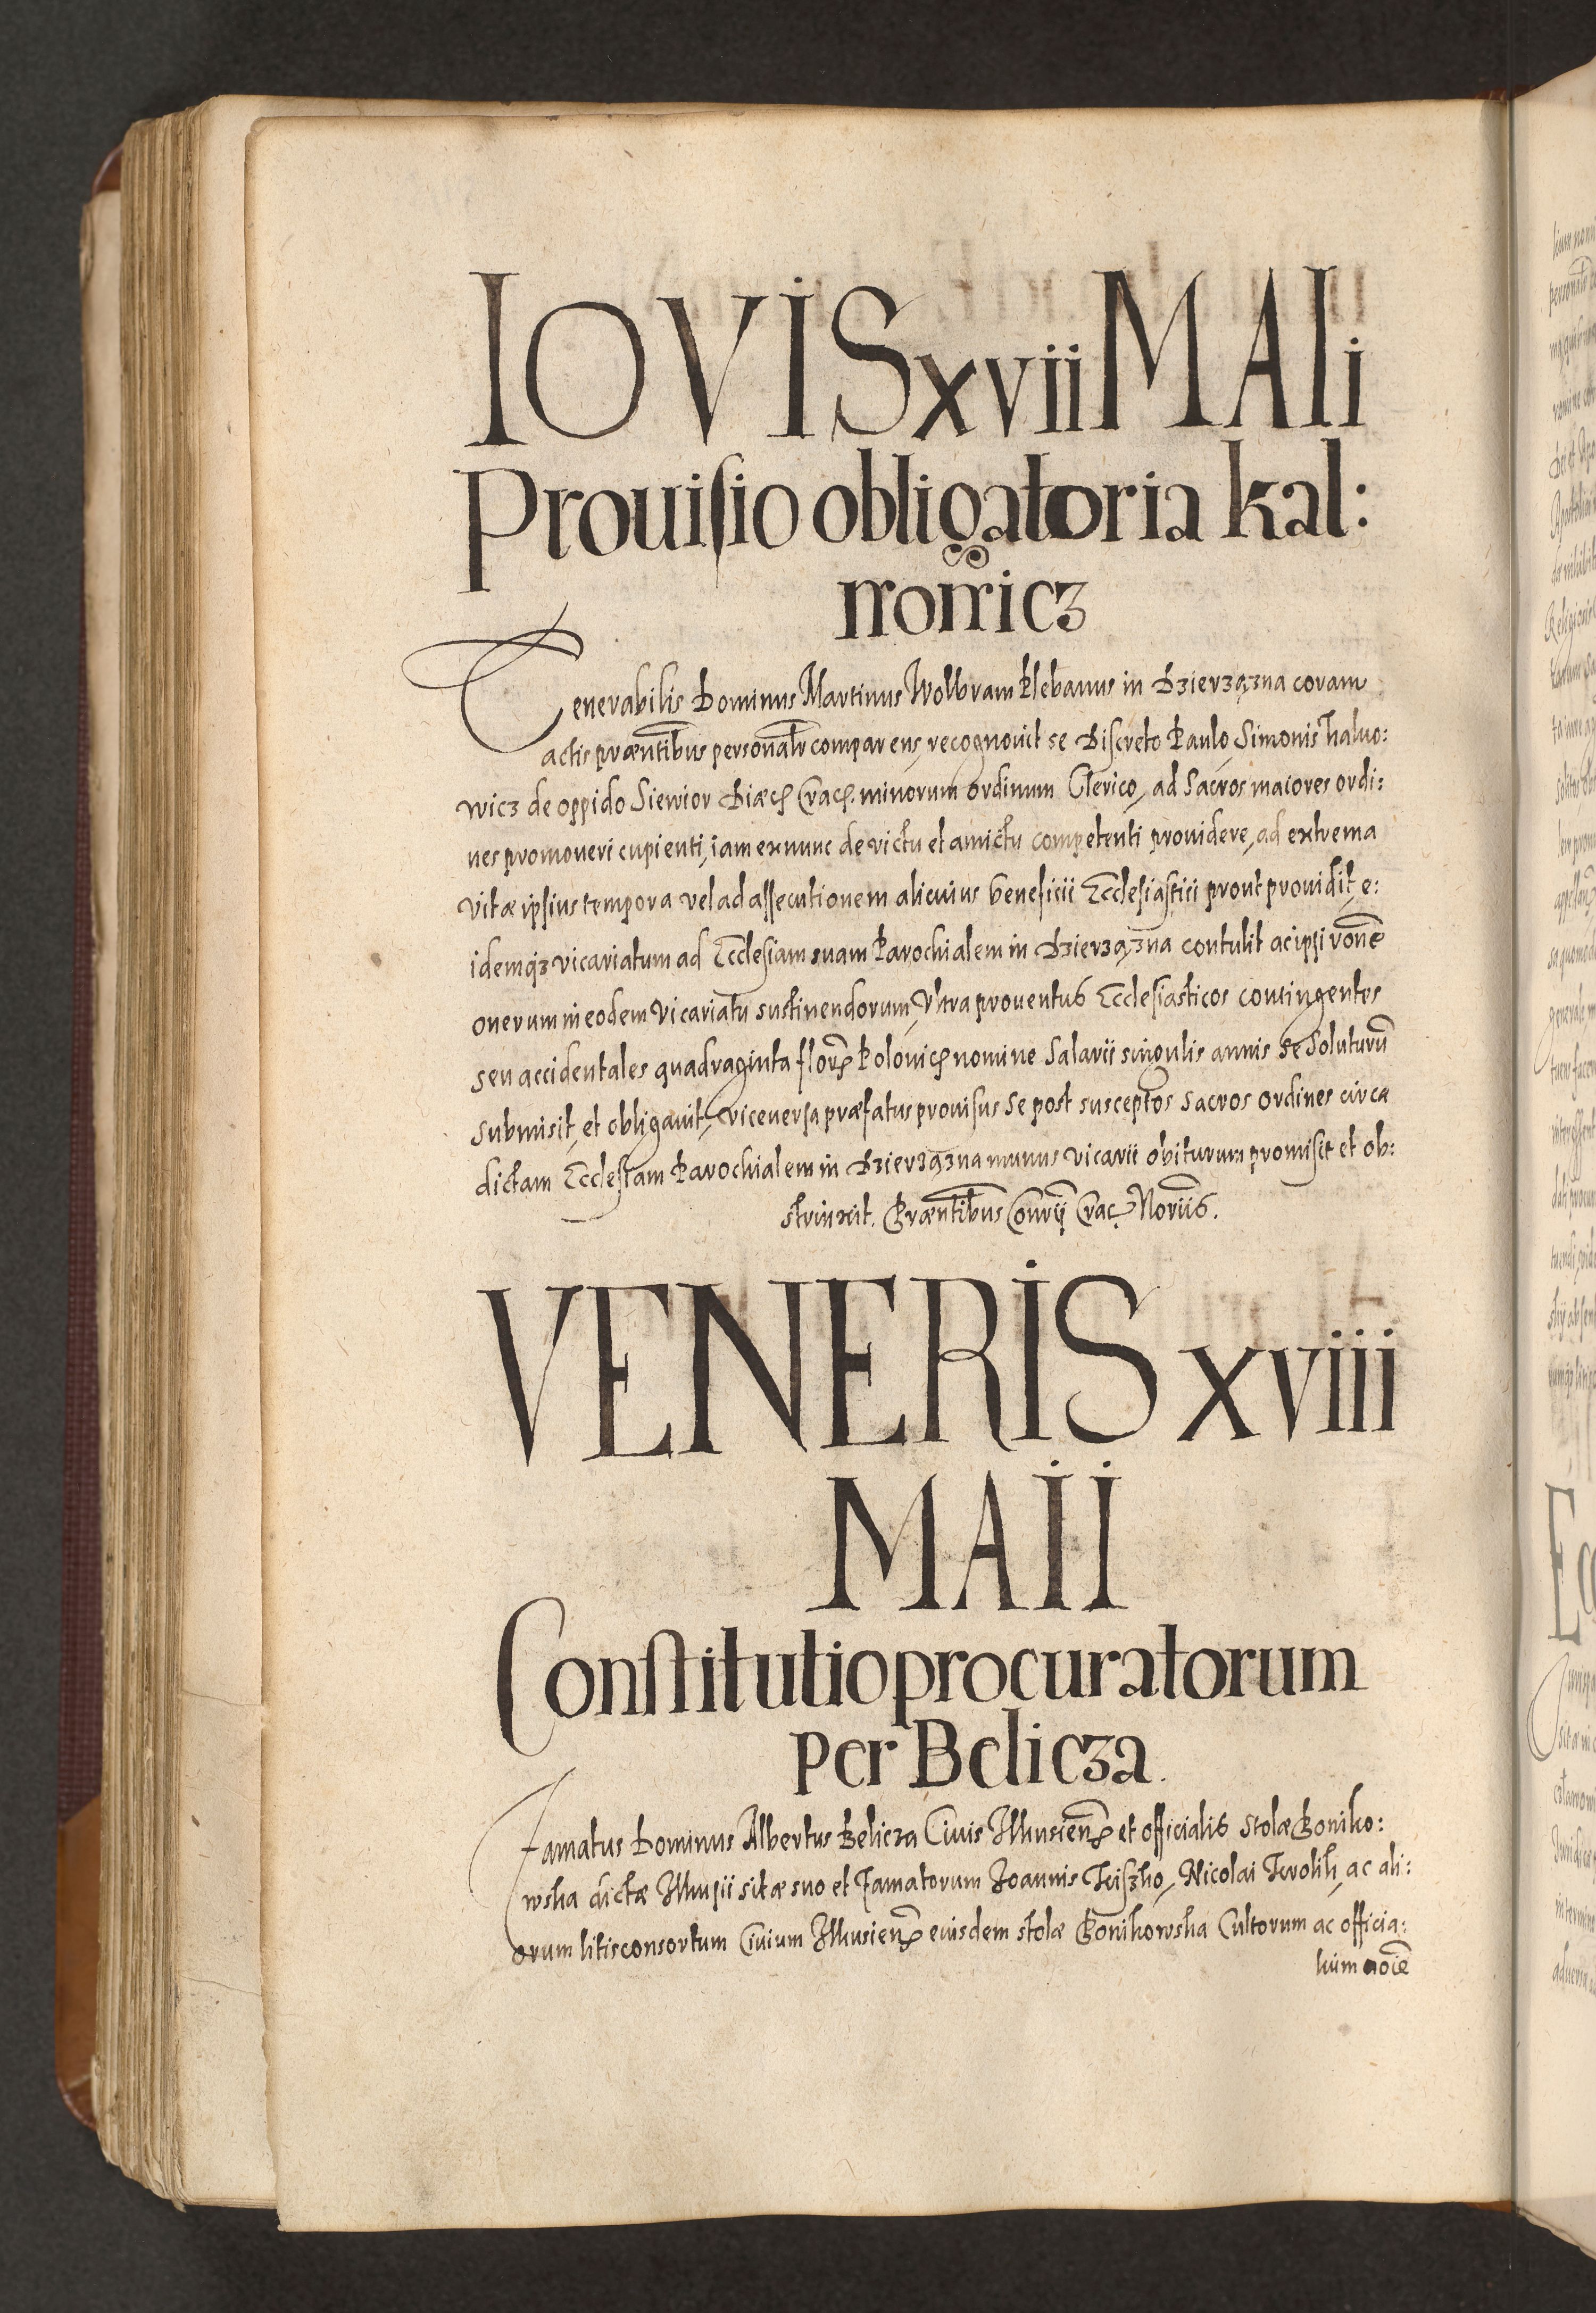 IOVIS xvii MAIi
Prouisio obligatoria kal:
nowicz
Venerabilis Dominus Martinus Wolbram Plebanus in Dzierzązna coram
actis præntibus personalr comparens, recognouit se Discreto Paulo Simonis kalno:
wicz de oppido Siewior Diæc Crac. minorum ordinum Clerico, ad Sacros maiores ordi:
nes promoueri cupienti, iam ex nunc de victu et amictu competenti prouidere, ad extrema
vitæ ipsius tempora vel ad assecutionem alicuius beneficii Ecclesiastici prout prouidit, e:
idemqz vicariatum ad Ecclesiam suam Parochialem in Dzierzązna contulit ac ipsi rone
onerum in eodem Vicariatu sustinendorum, Vltra prouentus Ecclesiasticos contingentes
seu accidentales quadraginta flor Polonic nomine Salarii singulis annis se Soluturu
submisit, et obligauit, viceuersa præfatus prouisus Se post susceptos sacros ordines circa
dictam Ecclesiam Parochialem in Dzierzązna munus vicarii obiturum promisit et ob:
strinxit. Præntibus Crac Noriis.
VENERIS xviii
MAII
Constitutio procuratorum
per Belicza.
Famatus Dominus Albertus Belicza Ciuis Ilkusien et officialis stolæ Poniko:
wska dictæ Ilkusii sitæ suo et Famatorum Joannis Nicolai ac ali:
orum litisconsortum Ciuium Ilkusien eiusdem stolæ Ponikowska Cultorum ac officia:
lium noie